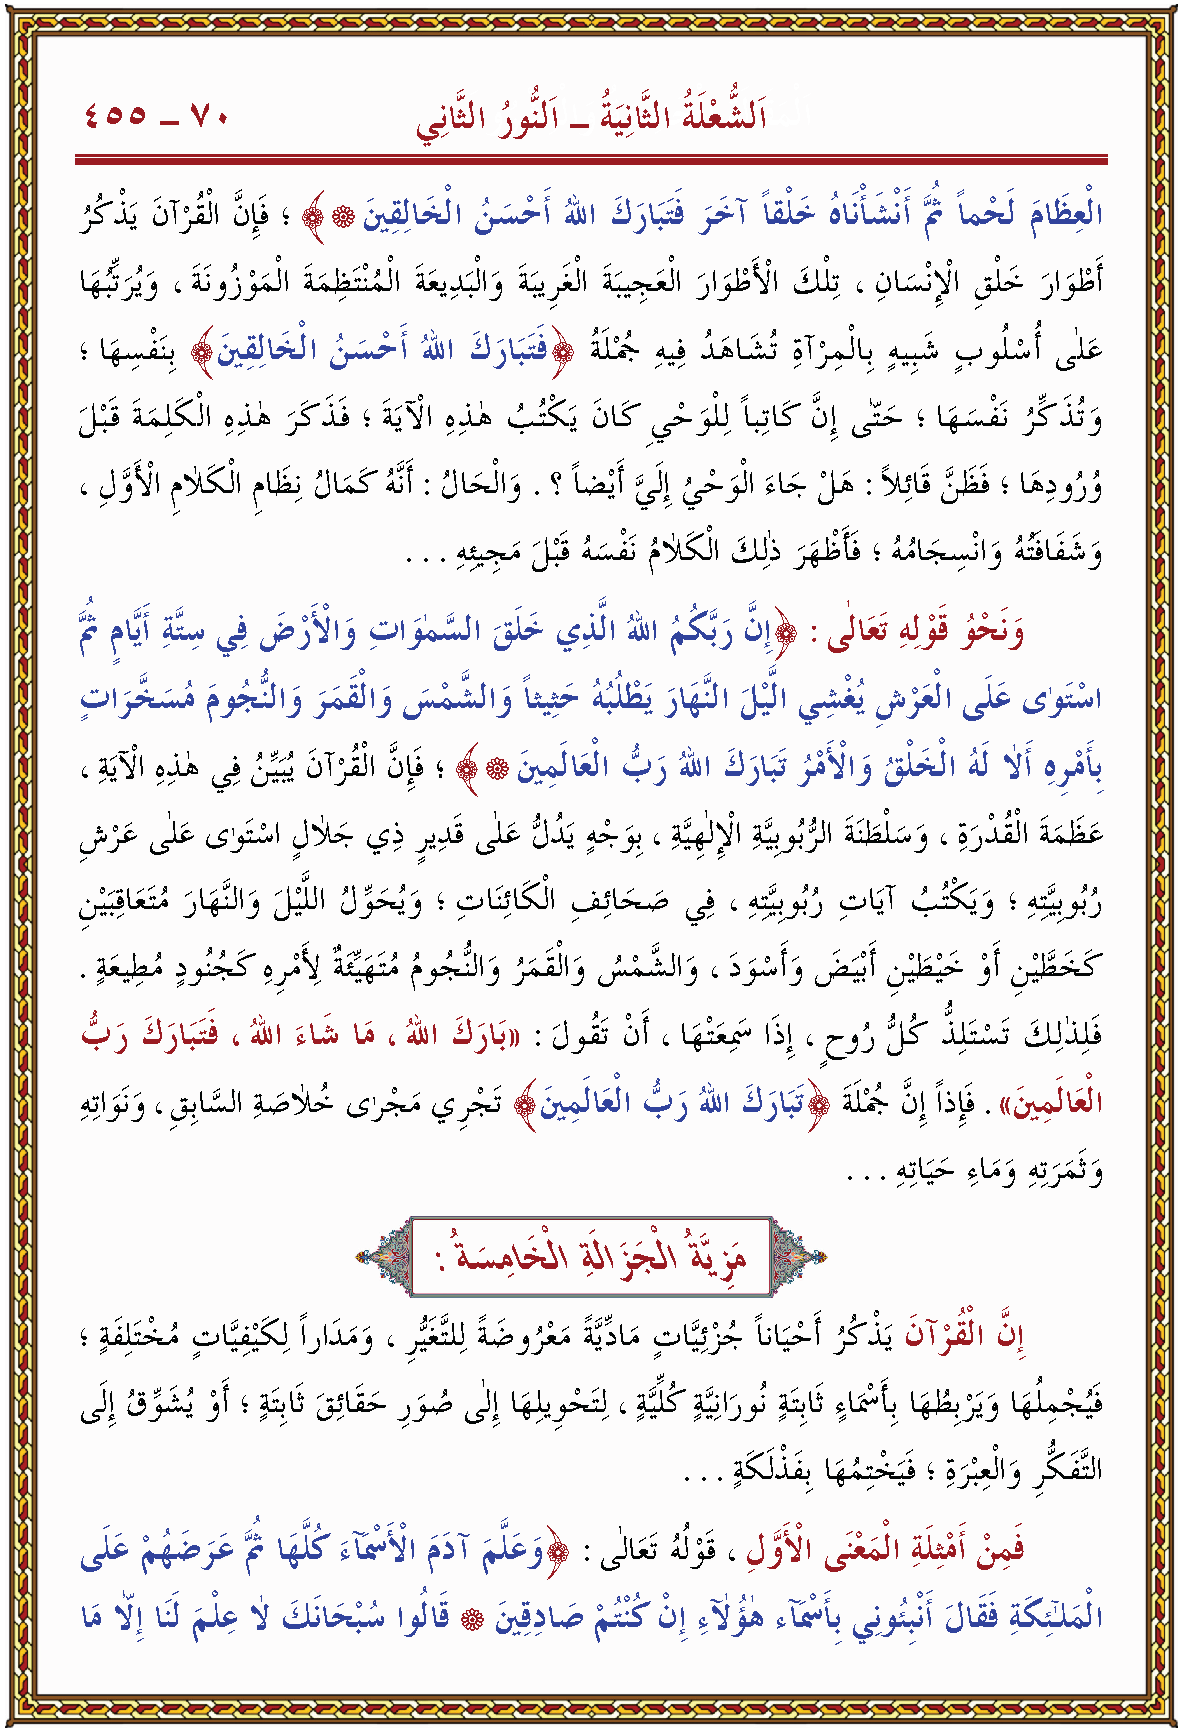 اَلشُّعْلَةُ الثَّانِيَةُ ـ اَلنُّورُ الثَّانِي ٧٠ ـ ٤٥٥
الْعِظَامَ لَحْماً ثُمَّ أَنْشَأْنَاهُ خَلْقاً آخَرَ فَتَبَارَكَ اللهُ أَحْسَنُ الْخَالِقِينَ ۞﴾ ؛ فَإِنَّ الْقُرْآنَ يَذْكُرُ
أَطْوَارَ خَلْقِ الْإِنْسَانِ ، تِلْكَ الْأَطْوَارَ الْعَجِيبَةَ الْغَرِيبَةَ وَالْبَدِيعَةَ الْمُنْتَظِمَةَ الْمَوْزُونَةَ ، وَيُرَتِّبُهَا
عَلٰى أُسْلُوبٍ شَبِيهٍ بِالْمِرْآةِ تُشَاهَدُ فِيهِ جُمْلَةُ ﴿فَتَبَارَكَ اللهُ أَحْسَنُ الْخَالِقِينَ﴾ بِنَفْسِهَا ؛
وَتُذَكِّرُ نَفْسَهَا ؛ حَتّٰى إِنَّ كَاتِباً لِلْوَحْيِ كَانَ يَكْتُبُ هٰذِهِ الْآيَةَ ؛ فَذَكَرَ هٰذِهِ الْكَلِمَةَ قَبْلَ
وُرُودِهَا ؛ فَظَنَّ قَائِلاً : هَلْ جَاءَ الْوَحْيُ إِلَيَّ أَيْضاً ؟ . وَالْحَالُ : أَنَّهُ كَمَالُ نِظَامِ الْكَلَامِ الْأَوَّلِ ،
وَشَفَافَتُهُ وَانْسِجَامُهُ ؛ فَأَظْهَرَ ذٰلِكَ الْكَلَامُ نَفْسَهُ قَبْلَ مَجِيئِهِ . . .
وَنَحْوُ قَوْلِهِ تَعَالٰى : ﴿إِنَّ رَبَّكُمُ اللهُ الَّذِي خَلَقَ السَّمٰوَاتِ وَالْأَرْضَ فِي سِتَّةِ أَيَّامٍ ثُمَّ
اسْتَوٰى عَلَى الْعَرْشِ يُغْشِي الَّيْلَ النَّهَارَ يَطْلُبُهُ حَثِيثاً وَالشَّمْسَ وَالْقَمَرَ وَالنُّجُومَ مُسَخَّرَاتٍ
بِأَمْرِهِ أَلَا لَهُ الْخَلْقُ وَالْأَمْرُ تَبَارَكَ اللهُ رَبُّ الْعَالَمِينَ ۞﴾ ؛ فَإِنَّ الْقُرْآنَ يُبَيِّنُ فِي هٰذِهِ الْآيَةِ ،
عَظَمَةَ الْقُدْرَةِ ، وَسَلْطَنَةَ الرُّبُوبِيَّةِ الْإِلٰهِيَّةِ ، بِوَجْهٍ يَدُلُّ عَلٰى قَدِيرٍ ذِي جَلَالٍ اسْتَوٰى عَلٰى عَرْشِ
رُبُوبِيَّتِهِ ؛ وَيَكْتُبُ آيَاتِ رُبُوبِيَّتِهِ ، فِي صَحَائِفِ الْكَائِنَاتِ ؛ وَيُحَوِّلُ اللَّيْلَ وَالنَّهَارَ مُتَعَاقِبَيْنِ
كَخَطَّيْنِ أَوْ خَيْطَيْنِ أَبْيَضَ وَأَسْوَدَ ، وَالشَّمْسُ وَالْقَمَرُ وَالنُّجُومُ مُتَهَيِّئَةٌ لِأَمْرِهِ كَجُنُودٍ مُطِيعَةٍ .
فَلِذٰلِكَ تَسْتَلِذُّ كُلُّ رُوحٍ ، إِذَا سَمِعَتْهَا ، أَنْ تَقُولَ : «بَارَكَ اللهُ ، مَا شَاءَ اللهُ ، فَتَبَارَكَ رَبُّ
الْعَالَمِينَ» . فَإِذاً إِنَّ جُمْلَةَ ﴿تَبَارَكَ اللهُ رَبُّ الْعَالَمِينَ﴾ تَجْرِي مَجْرٰى خُلَاصَةِ السَّابِقِ ، وَنَوَاتِهِ
وَثَمَرَتِهِ وَمَاءِ حَيَاتِهِ . . .
مَزِيَّةُ الْجَزَالَةِ الْخَامِسَةُ :
إِنَّ الْقُرْآنَ يَذْكُرُ أَحْيَاناً جُزْئِيَّاتٍ مَادِّيَّةً مَعْرُوضَةً لِلتَّغَيُّرِ ، وَمَدَاراً لِكَيْفِيَّاتٍ مُخْتَلِفَةٍ ؛
فَيُجْمِلُهَا وَيَرْبِطُهَا بِأَسْمَاءٍ ثَابِتَةٍ نُورَانِيَّةٍ كُلِّيَّةٍ ، لِتَحْوِيلِهَا إِلٰى صُوَرِ حَقَائِقَ ثَابِتَةٍ ؛ أَوْ يُشَوِّقُ إِلَى
التَّفَكُّرِ وَالْعِبْرَةِ ؛ فَيَخْتِمُهَا بِفَذْلَكَةٍ . . .
فَمِنْ أَمْثِلَةِ الْمَعْنَى الْأَوَّلِ ، قَوْلُهُ تَعَالٰى : ﴿وَعَلَّمَ آدَمَ الْأَسْمَآءَ كُلَّهَا ثُمَّ عَرَضَهُمْ عَلَى
الْمَلٰٓئِكَةِ فَقَالَ أَنْبِئُونِي بِأَسْمَآءِ هٰٓؤُلَآءِ إِنْ كُنْتُمْ صَادِقِينَ ۞ قَالُوا سُبْحَانَكَ لَا عِلْمَ لَنَا إِلَّا مَا